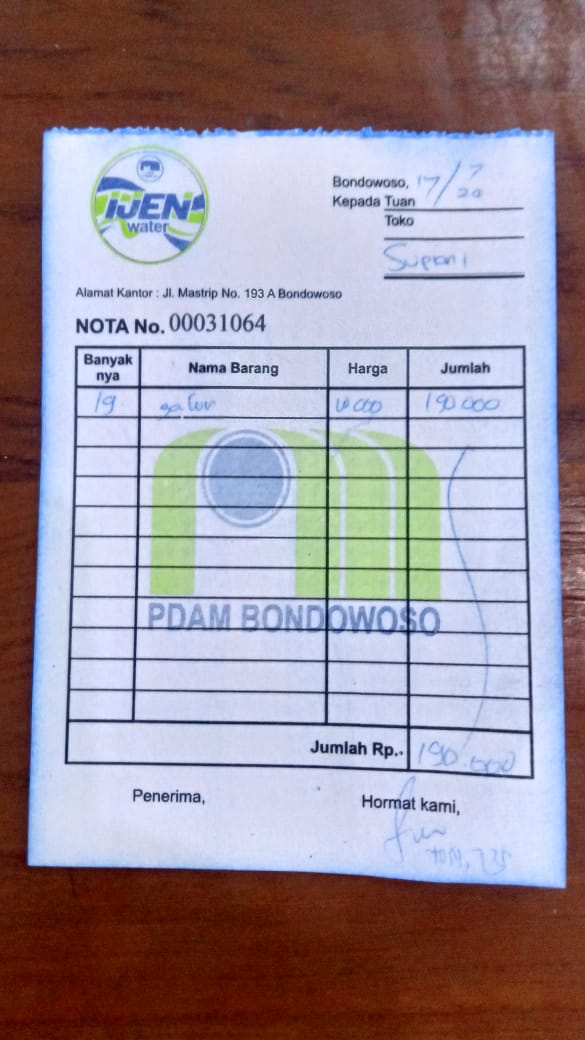 IJEN
water
Bondowoso, 17/7 20
Kepada Tuan
Toko
Supani
Alamat Kantor : Jl. Mastrip No. 193 A Bondowoso
NOTA No. 00031064
Banyak nya Nama Barang Harga Jumlah
19 galon 10 000 190 000
PDAM BONDOWOSO
Jumlah Rp.- 190.000
Penerima,
Hormat kami,